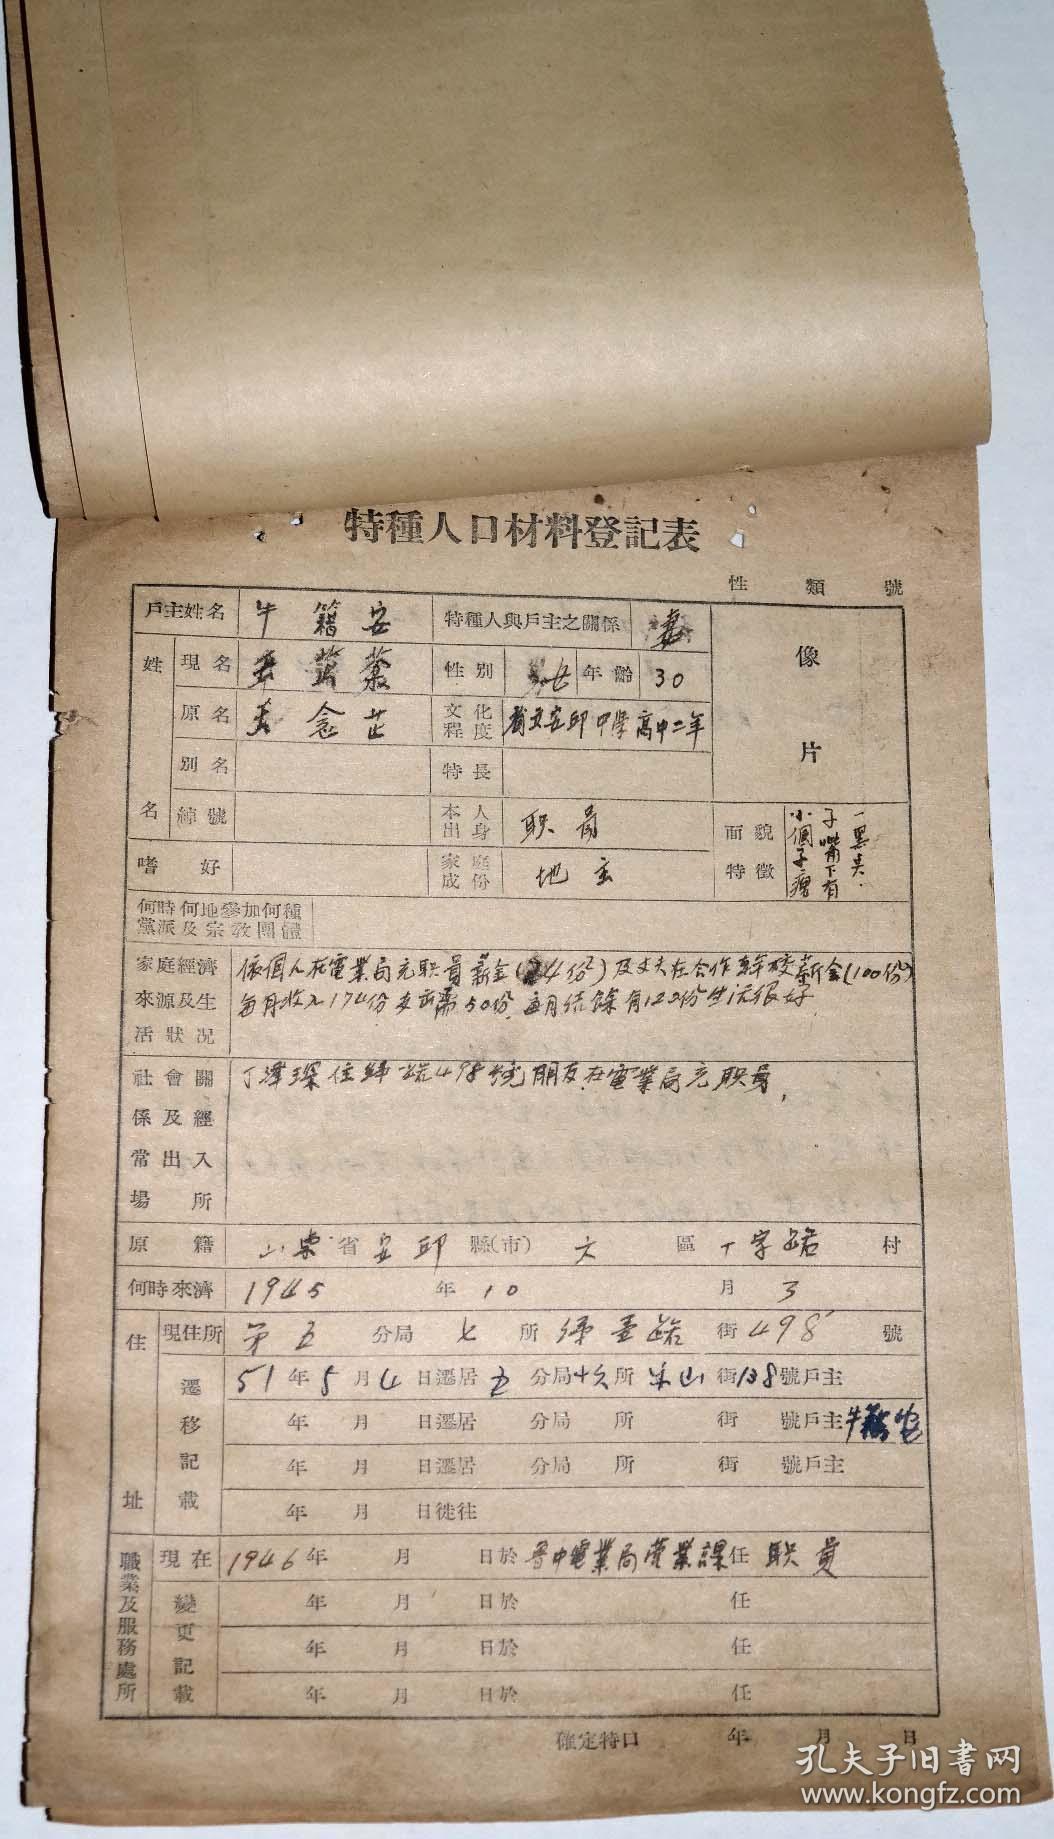 特種人口材料登記表
性 類 號
戶主姓名 牛籍安 特種人與戶主之關係 妻 像片
姓名 現名 性別 女 年齡 30
原名 念芷 文化程度 安邱中學高中二年
別名 特長
綽號 本人出身 职員 面貌特徵 小個子瘦子嘴下有一黑
嗜好 家庭成份 地主
何時何地參加何種黨派及宗教團體
家庭經濟來源及生活狀況 個人在電業局充职員薪金(74份)及丈夫在合作 校薪金(100份)
每月收入174份 需50份 每月结餘有120份生活很好
社會關係及經常出入場所 丁津琛住緯 498號朋友在電業局充职員,
原籍 山東省安邱縣(市) 六 區 丁字路 村
何時來濟 1945 年 10 月 3
住址 現住所 第五 分局 七 所 街 498 號
遷移記載 51年5月4日遷居五分局十六所 山街138號戶主
年 月 日遷居 分局 所 街 號戶主 牛籍安
年 月 日遷居 分局 所 街 號戶主
年 月 日徙往
職業及服務處所 現在 1946年 月 日於 魯中電業局營業課任 职員
變更記載 年 月 日於 任
年 月 日於 任
年 月 日於 任
確定特口 年 月 日
孔夫子旧書网
www.kongfz.com